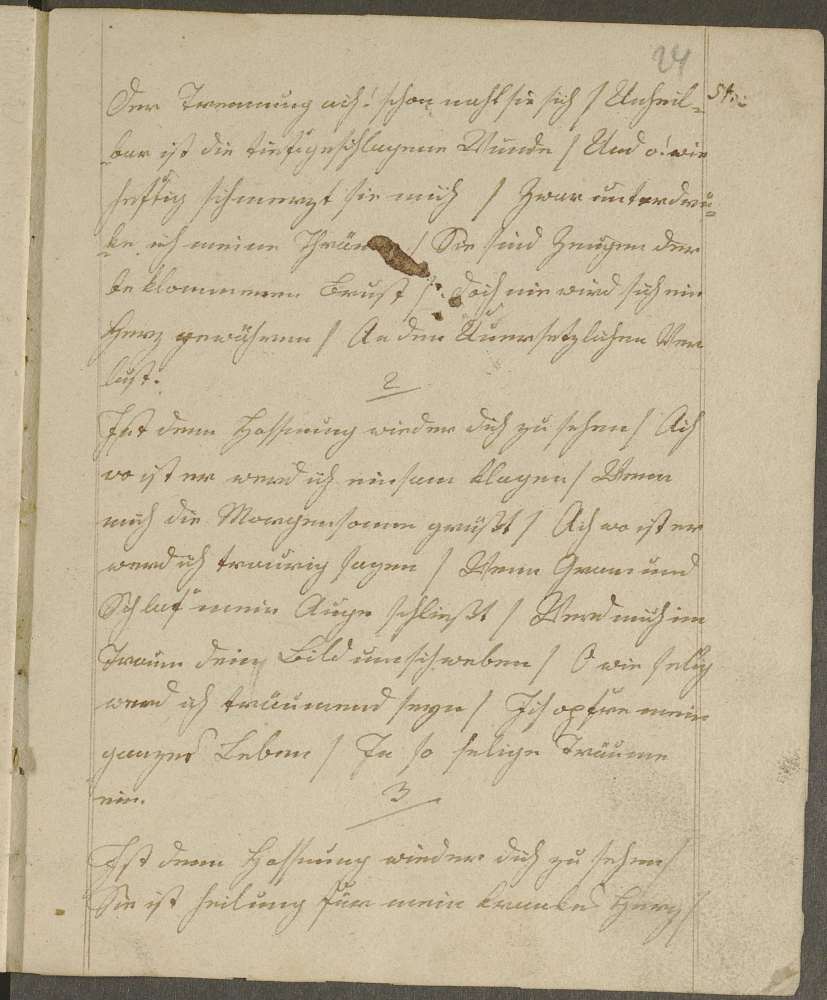 24
Der Trennung ach! schon naht sie sich / Unheil- St:
bar ist die tiefgeschlagene Wunde / Und o! wie
heftig schmerzt sie mich / Zwar unterdrü-
ke ich meine / Sie sind Zeugen der
beklommenen Brust /: doch nie wird sich ein
Herz gewöhnen / An den Unersetzlichen Ver
lust.
2
Ist denn Hoffnung wieder dich zu sehen / Ach
wo ist er werd ich einsam klagen / Wenn
mich die Morgensonne grüßt / Ach wo ist er
werd ich traurig sagen / Wenn Gram und
Schlaf mein Auge schließt / Werd mich im
Traum dein Bild umschweben / O wie selig
werd ich träumend seyn / Ich opfre mein
ganzes Leben / In so selige Träume
ein.
3
Ist denn Hoffnung wieder dich zu sehen /
Sie ist heilung für mein krankes Herz /